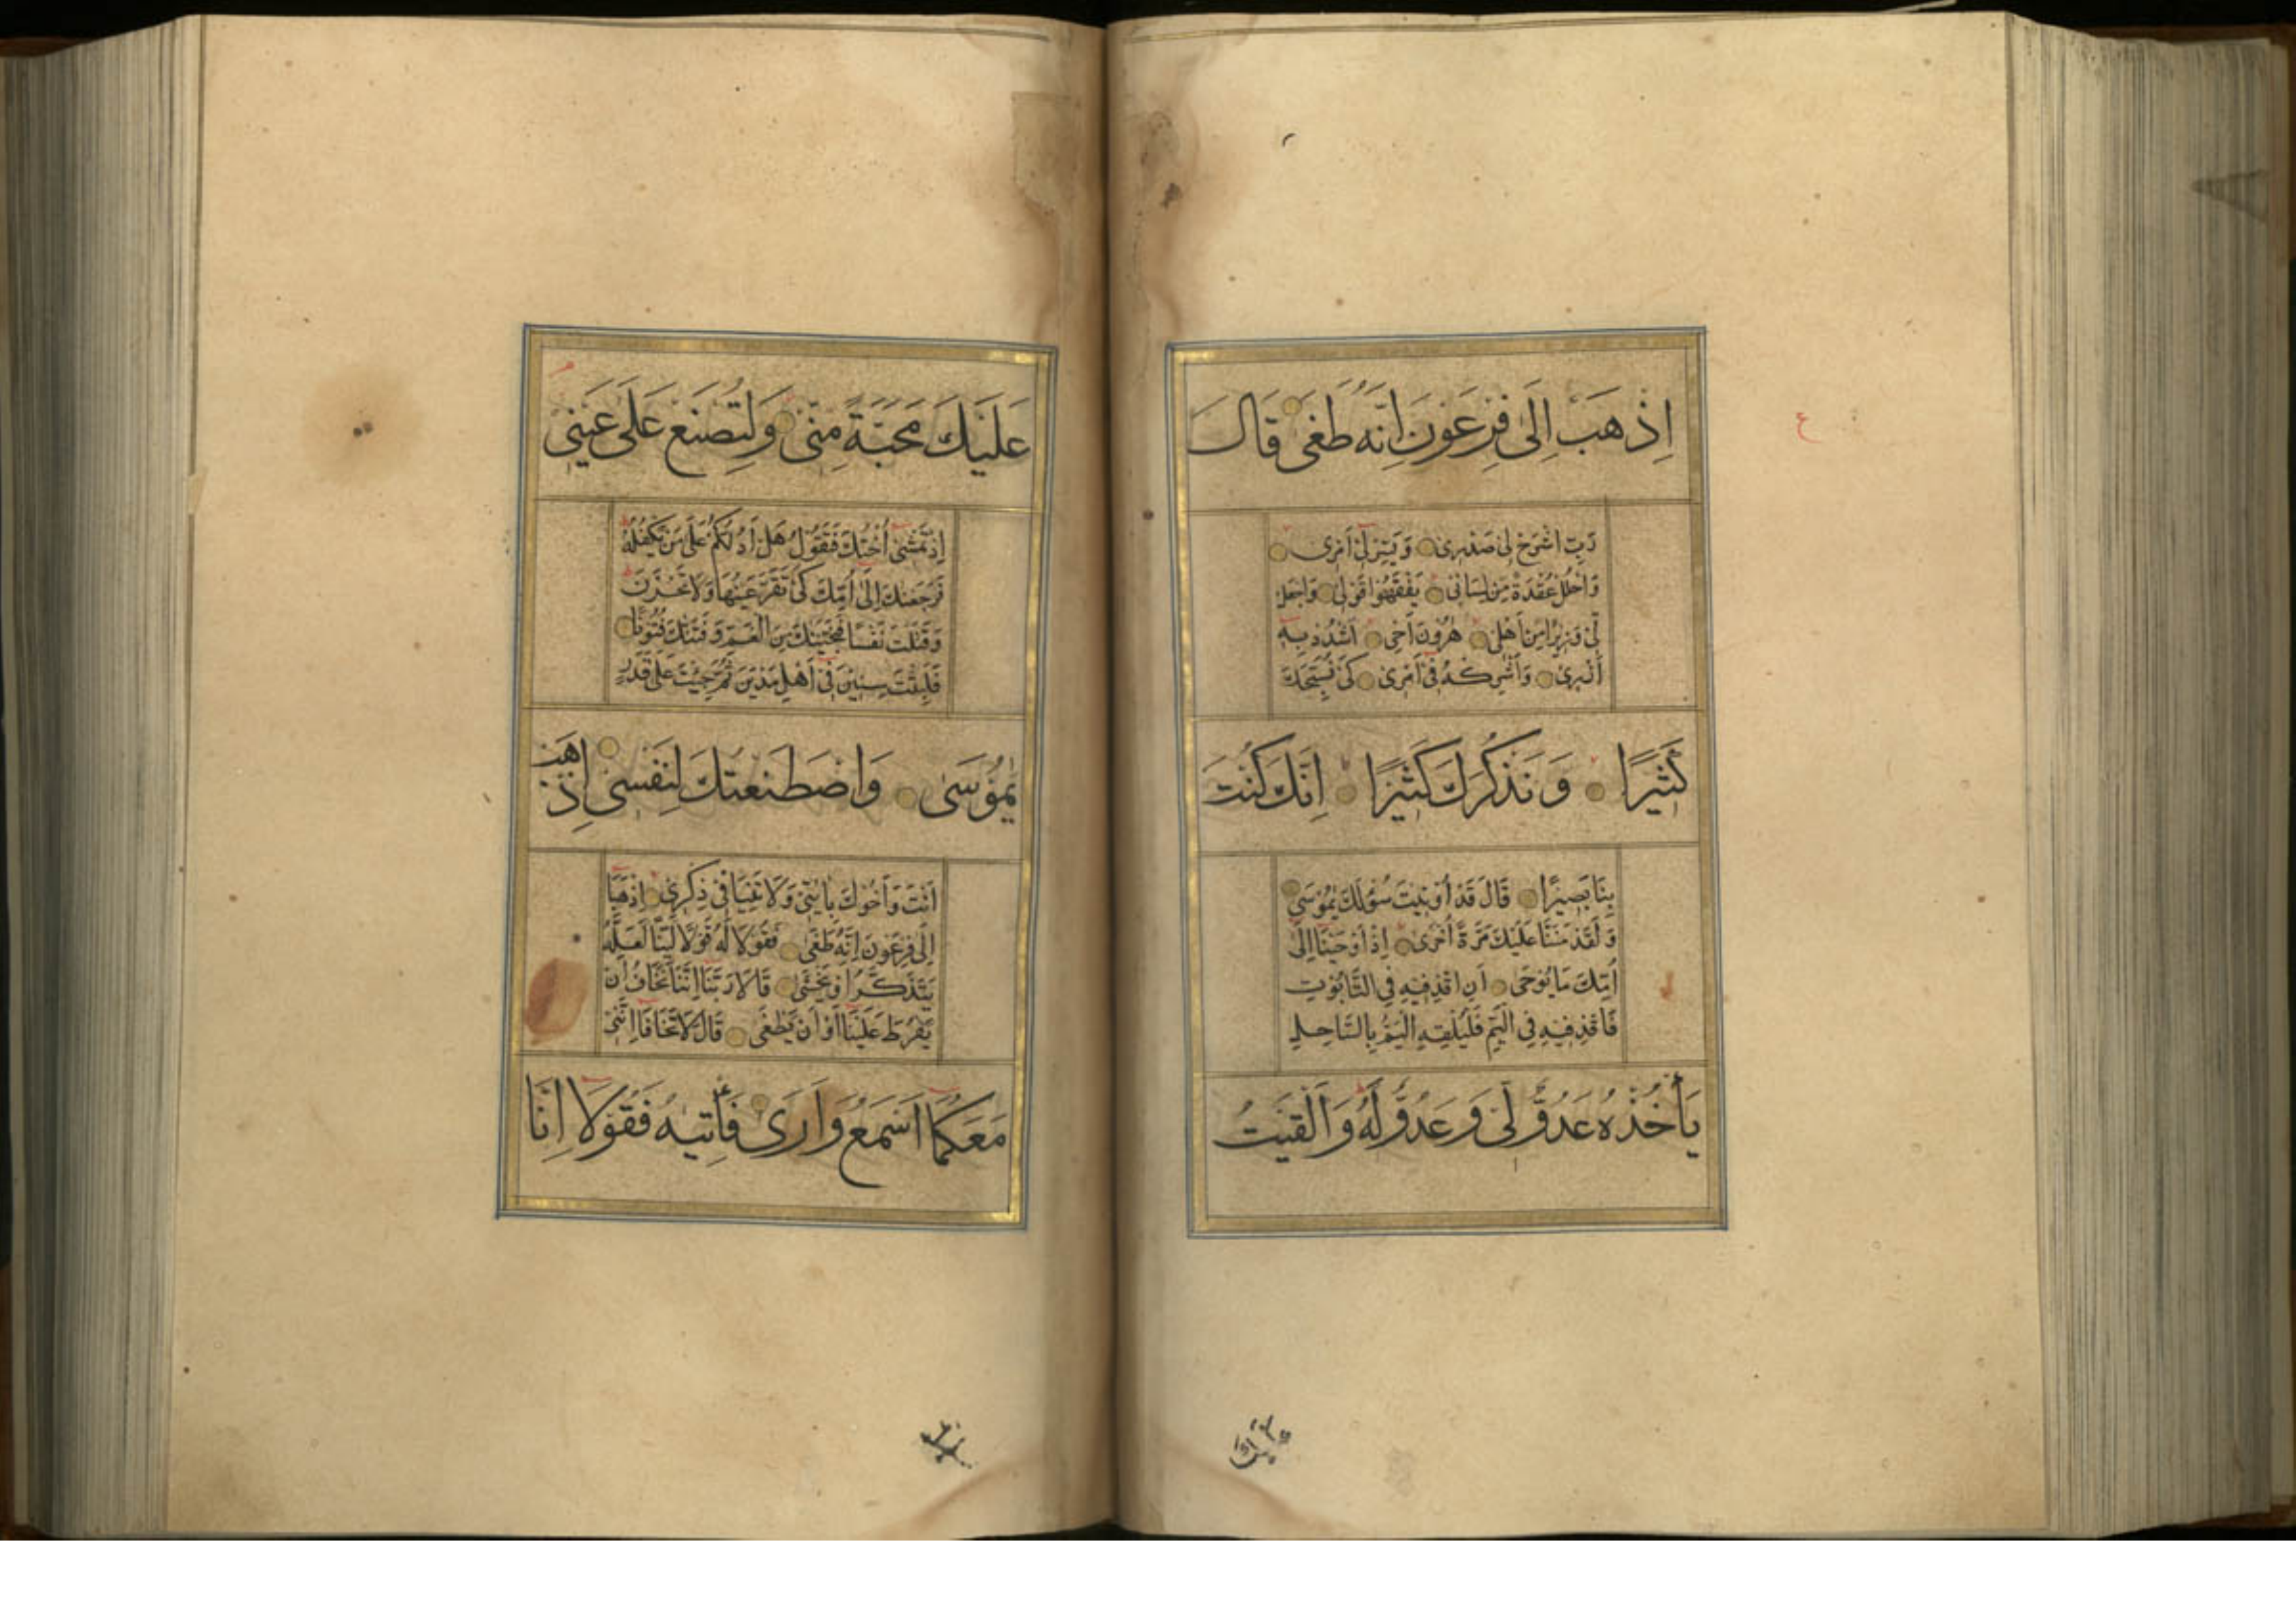 ع
اِذْهَبْ اِلَى فِرْعَوْنَ اِنَّهُ طَغَى قَالَ
رَبِّ اشْرَحْ لِى صَدْرِى وَيَسِّرْ لِى اَمْرِى
وَاحْلُلْ عُقْدَةً مِنْ لِسَانِى يَفْقَهُوا قَوْلِى وَاجْعَلْ
لِى وَزِيرًا مِنْ اَهْلِى هٰرُونَ اَخِى اشْدُدْ بِهِ
اَزْرِى وَاَشْرِكْهُ فِى اَمْرِى كَىْ نُسَبِّحَكَ
كَثِيرًا وَنَذْكُرَكَ كَثِيرًا اِنَّكَ كُنْتَ
بِنَا بَصِيرًا قَالَ قَدْ اُوتِيتَ سُؤْلَكَ يٰمُوسَى
وَلَقَدْ مَنَنَّا عَلَيْكَ مَرَّةً اُخْرَى اِذْ اَوْحَيْنَا اِلَى
اُمِّكَ مَا يُوحَى اَنِ اقْذِفِيهِ فِى التَّابُوتِ
فَاقْذِفِيهِ فِى الْيَمِّ فَلْيُلْقِهِ الْيَمُّ بِالسَّاحِلِ
يَأْخُذْهُ عَدُوٌّ لِى وَعَدُوٌّ لَهُ وَاَلْقَيْتُ
عَلَيْكَ مَحَبَّةً مِنِّى وَلِتُصْنَعَ عَلَى عَيْنِى
اِذْ تَمْشِى اُخْتُكَ فَتَقُولُ هَلْ اَدُلُّكُمْ عَلَى مَنْ يَكْفُلُهُ
فَرَجَعْنٰكَ اِلَى اُمِّكَ كَىْ تَقَرَّ عَيْنُهَا وَلَا تَحْزَنَ
وَقَتَلْتَ نَفْسًا فَنَجَّيْنٰكَ مِنَ الْغَمِّ وَفَتَنّٰكَ فُتُونًا
فَلَبِثْتَ سِنِينَ فِى اَهْلِ مَدْيَنَ ثُمَّ جِئْتَ عَلَى قَدَرٍ
يٰمُوسَى وَاصْطَنَعْتُكَ لِنَفْسِى اِذْهَبْ
اَنْتَ وَاَخُوكَ بِاٰيٰتِى وَلَا تَنِيَا فِى ذِكْرِى اِذْهَبَا
اِلَى فِرْعَوْنَ اِنَّهُ طَغَى فَقُولَا لَهُ قَوْلًا لَيِّنًا لَعَلَّهُ
يَتَذَكَّرُ اَوْ يَخْشَى قَالَا رَبَّنَا اِنَّنَا نَخَافُ اَنْ
يَفْرُطَ عَلَيْنَا اَوْ اَنْ يَطْغَى قَالَ لَا تَخَافَا اِنَّنِى
مَعَكُمَا اَسْمَعُ وَاَرَى فَأْتِيٰهُ فَقُولَا اِنَّا